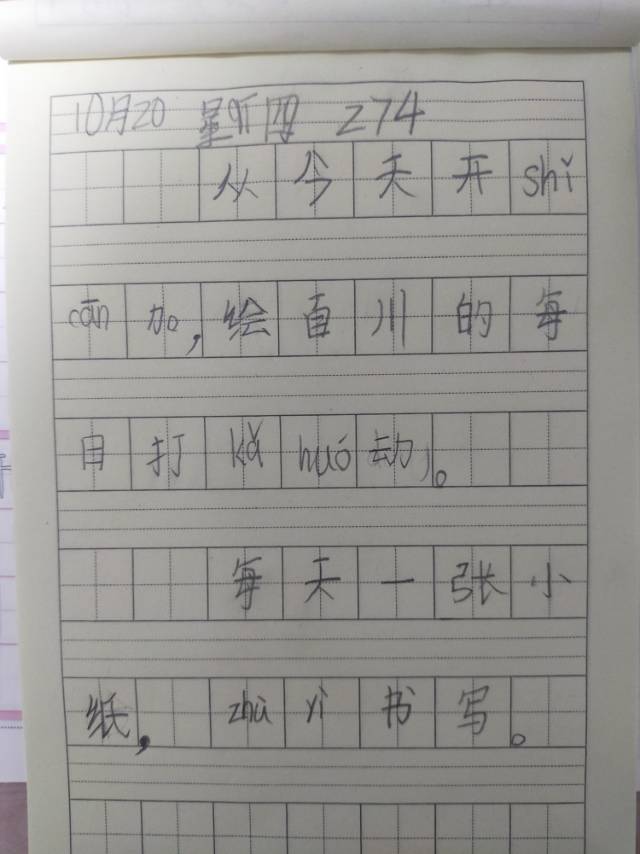 10月20 星期四 274
从今天开shǐ
cān加,绘百川的每
日打kǎ huó动。
每天一张小
纸, zhù yì书写。